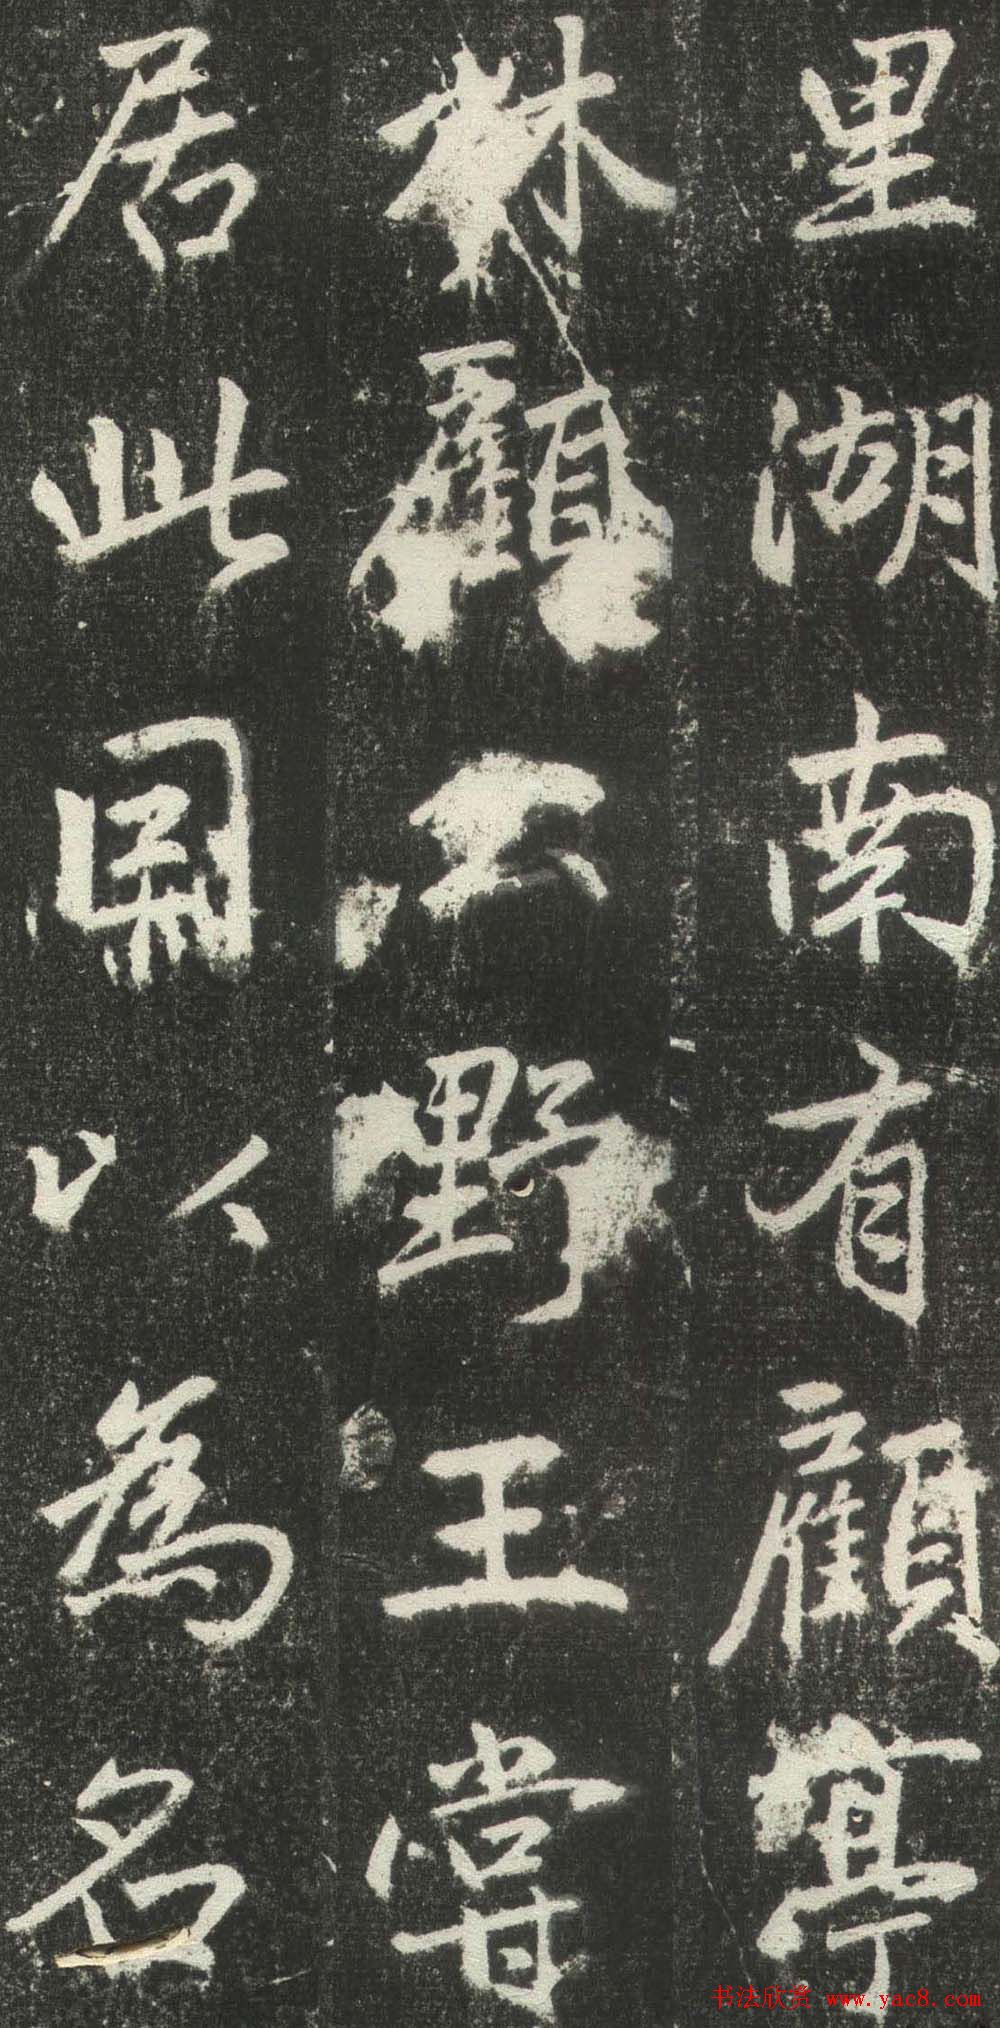 里湖南有顧亭
林顧野王嘗
居此因以為名
书法欣赏 www.yac8.com